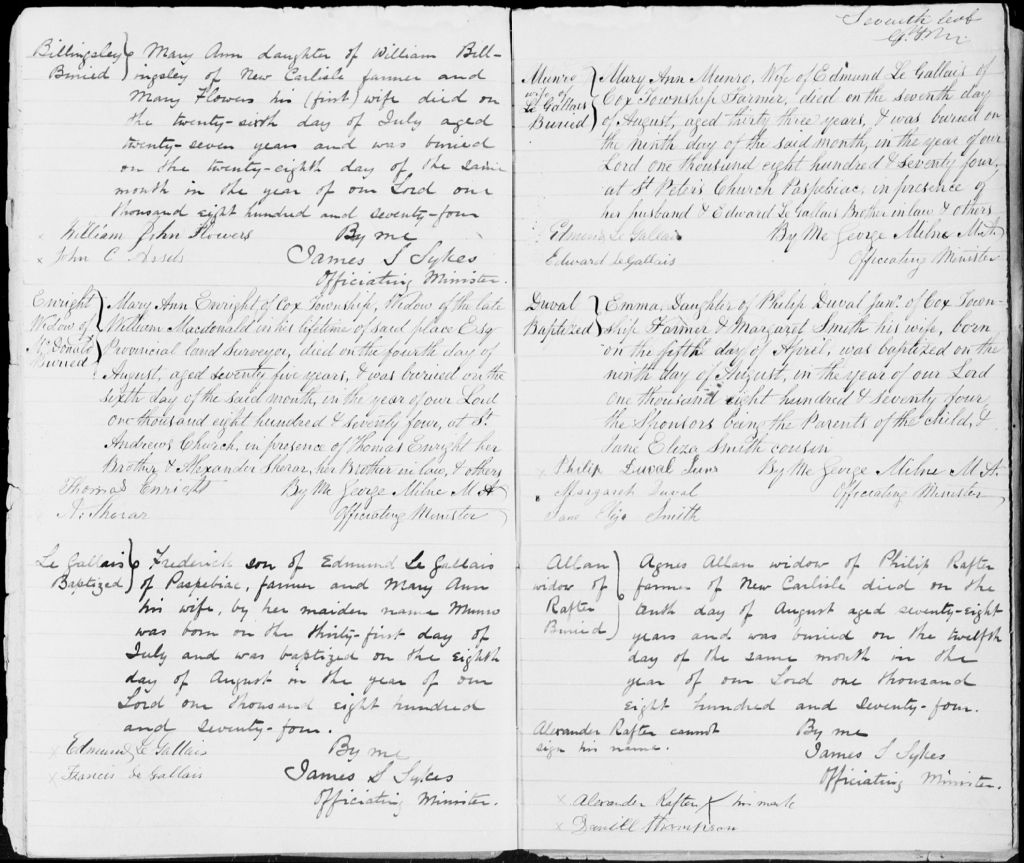 Billingsley Buried
Mary Ann daughter of William Bill-
ingsley of New Carlisle farmer and
Mary Flowers his (first) wife died on
the twenty-sixth day of July aged
twenty-seven years and was buried
on the twenty-eighth day of the same
month in the year of our Lord one
thousand eight hundred and seventy-four
William John Flowers By me
John C James S Sykes
Officiating Minister.
Enright Widow of McDonald Buried
Mary Ann Enright of Cox Township, Widow of the late
William Macdonald in his lifetime of said place Esq
Provincial land Surveyor, died on the fourth day of
August, aged seventy five years, & was buried on the
sixth day of the said month, in the year of our Lord
one thousand eight hundred & seventy four, at St.
Andrews Church, in presence of Thomas Enright her
Brother & Alexander Sherar, her Brother in law, & others
Thomas Enright By Me George Milne M A
A. Sherar Officiating Minister
Le Gallais Baptized
Frederick son of Edmund Le Gallais
of Paspebiac, farmer and Mary Ann
his wife, by her maiden name Munro
was born on the thirty-first day of
July and was baptized on the eighth
day of August in the year of our
Lord one thousand eight hundred
and seventy-four.
Edmund Le Gallais By me
Francis Le Gallais James S Sykes
Officiating Minister.
Seventh leaf
Munro wife of Le Gallais Buried
Mary Ann Munro, Wife of Edmund Le Gallais of
Cox Township Farmer, died on the seventh day
of August, aged thirty three years, & was buried on
the ninth day of the said month, in the year of our
Lord one thousand eight hundred & seventy four,
at St Peter's Church Paspebiac, in presence of
her husband & Edward Le Gallais Brother in law & others
Edmund Le Gallais By Me George Milne M.A.
Edward Le Gallais Officiating Minister
Duval Baptized
Emma, Daughter of Philip Duval Junr. of Cox Town-
ship Farmer & Margaret Smith his wife, born
on the fifth day of April, was baptized on the
ninth day of August, in the year of our Lord
one thousand eight hundred & seventy four
the Sponsors being the Parents of the child, &
Jane Eliza Smith cousin
Philip Duval Junr By Me George Milne M A.
Margaret Duval Officiating Minister
Jane Eliza Smith
Allan widow of Rafter Buried
Agnes Allan widow of Philip Rafter
farmer of New Carlisle died on the
tenth day of August aged seventy-eight
years and was buried on the twelfth
day of the same month in the
year of our Lord one thousand
eight hundred and seventy-four.
Alexander Rafter cannot By me
sign his name. James S Sykes
Officiating Minister.
Alexander Rafter X his mark
Daniel Thompson